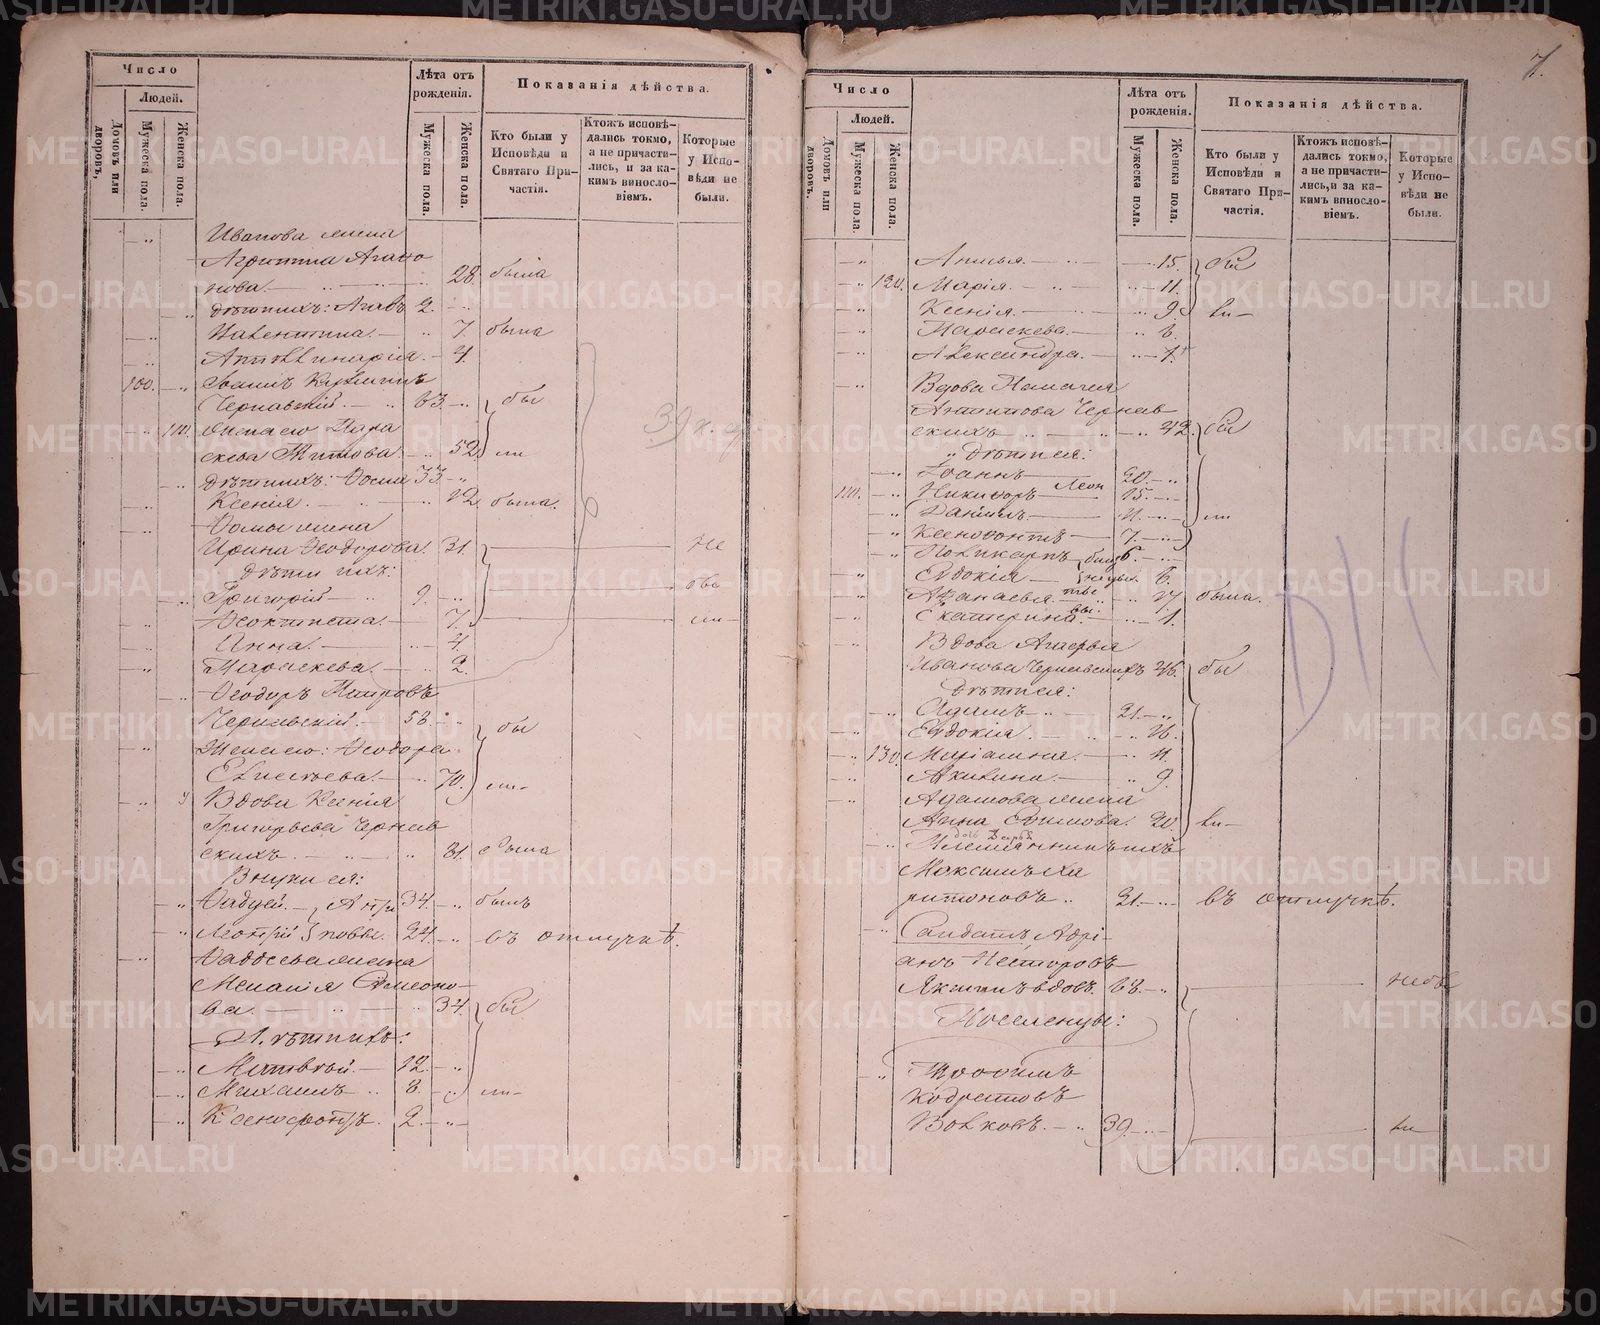 METRIKI.GASO-URAL.RU
Число
Людей.
Домовъ или дворовъ,
Мужеска пола.
Женска пола.
Лѣта отъ рожденія.
Мужеска пола.
Женска пола.
Показанія дѣйства.
Кто были у Исповѣди и Святаго Причастія.
Ктожъ исповѣдались токмо, а не причастились, и за какимъ винословіемъ.
Которые у Исповѣди не были.
Иванова жена
Агрипина Агафо
нова. 28. была
дѣти ихъ: 2.
Валентина. 7. была
Апполлинарія. 4.
100. Іоаннъ
Чернавскій. 63. бы
110. Жена его Пара
скева Титова. 52. ли
дѣти ихъ: 33.
Ксенія. 12. была.
жена
Ирина Ѳеодорова. 31. не
дѣти ихъ:
Григорій 9. бы
Ѳеоктиста. 7. ли
Анна. 4.
Параскева. 2.
Ѳеодоръ Петровъ
Чернавскій. 58. бы
Жена его: Ѳеодора
Елисѣева. 70. ли
Вдова Ксенія
Григорьева Чернав
скихъ. 81. была
Внуки ея:
Ѳаддей. 34. былъ
Леонтій 24. въ отлучкѣ.
Ѳаддеева жена
Меланія Симеоно
ва. 34. бы
Дѣти ихъ:
Матвѣй. 12.
Михаилъ 8. ли
Ксенофонтъ. 2.
39
7.
Число
Людей.
Домовъ или дворовъ.
Мужеска пола.
Женска пола.
Лѣта отъ рожденія.
Мужеска пола.
Женска пола.
Показанія дѣйства.
Кто были у Исповѣди и Святаго Причастія.
Ктожъ исповѣдались токмо, а не причастились, и за какимъ винословіемъ.
Которые у Исповѣди не были.
Анисья. 15. бы
120. Марія. 11.
Ксенія. 9. ли
Параскева. 6.
Александра. 1.
Вдова Пелагея
Антипова Чернав
скихъ 42. бы
дѣти ея:
Іоаннъ 20.
Никифоръ 15.
Даніилъ 11. ли
Ксенофонтъ 7.
Поликарпъ 6.
Евдокія 6.
Афанасья 17. была.
Екатерина. 1.
Вдова
Иванова Чернавскихъ 46. бы
Дѣти ея:
Адамъ 21.
Евдокія. 16.
130. Маріамна. 11.
Акилина. 9.
Адамова жена
Анна Ефимова. 20. ли
Племянникъ ихъ
Максимъ Ха
ритоновъ 21. въ отлучкѣ.
Солдатъ Адрі
анъ Несторовъ
68. не бы
Поселенцы:
Трофимъ
Кодратовъ
Волковъ. 39. ли